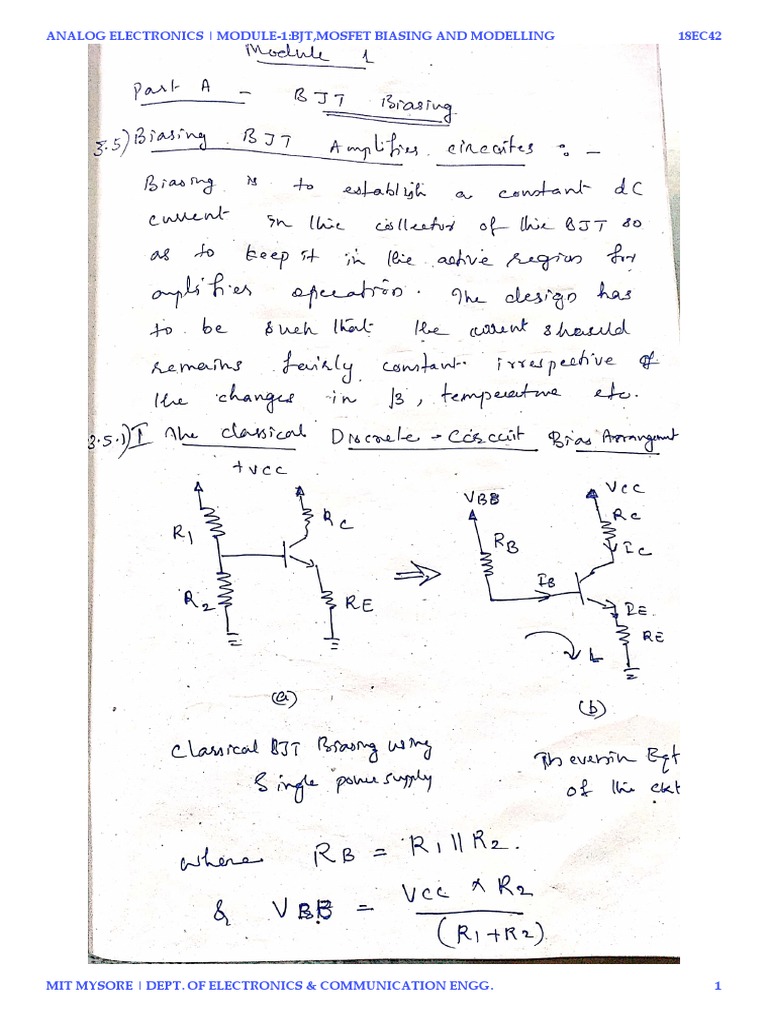 ANALOG ELECTRONICS | MODULE-1:BJT,MOSFET BIASING AND MODELLING 18EC42
Module 1
Part A - BJT Biasing
3.5) Biasing BJT Amplifier circuites :-
Biasing is to establish a constant dC
current in the collector of the BJT so
as to keep it in the active region for
amplifier operation. The design has
to be such that the current should
remains fairly constant irrespective of
the changes in β, temperature etc.
3.5.1) I The classical Discrete - Circuit Bias Arrangement
+VCC
R1
RC
R2
RE
(a)
VBB
RB
IB
VCC
RC
IC
RE
L
(b)
Classical BJT Biasing using
Single power supply
Eqt
of the ckt
where RB = R1 || R2.
& VBB = VCC × R2
(R1+R2)
MIT MYSORE | DEPT. OF ELECTRONICS & COMMUNICATION ENGG. 1